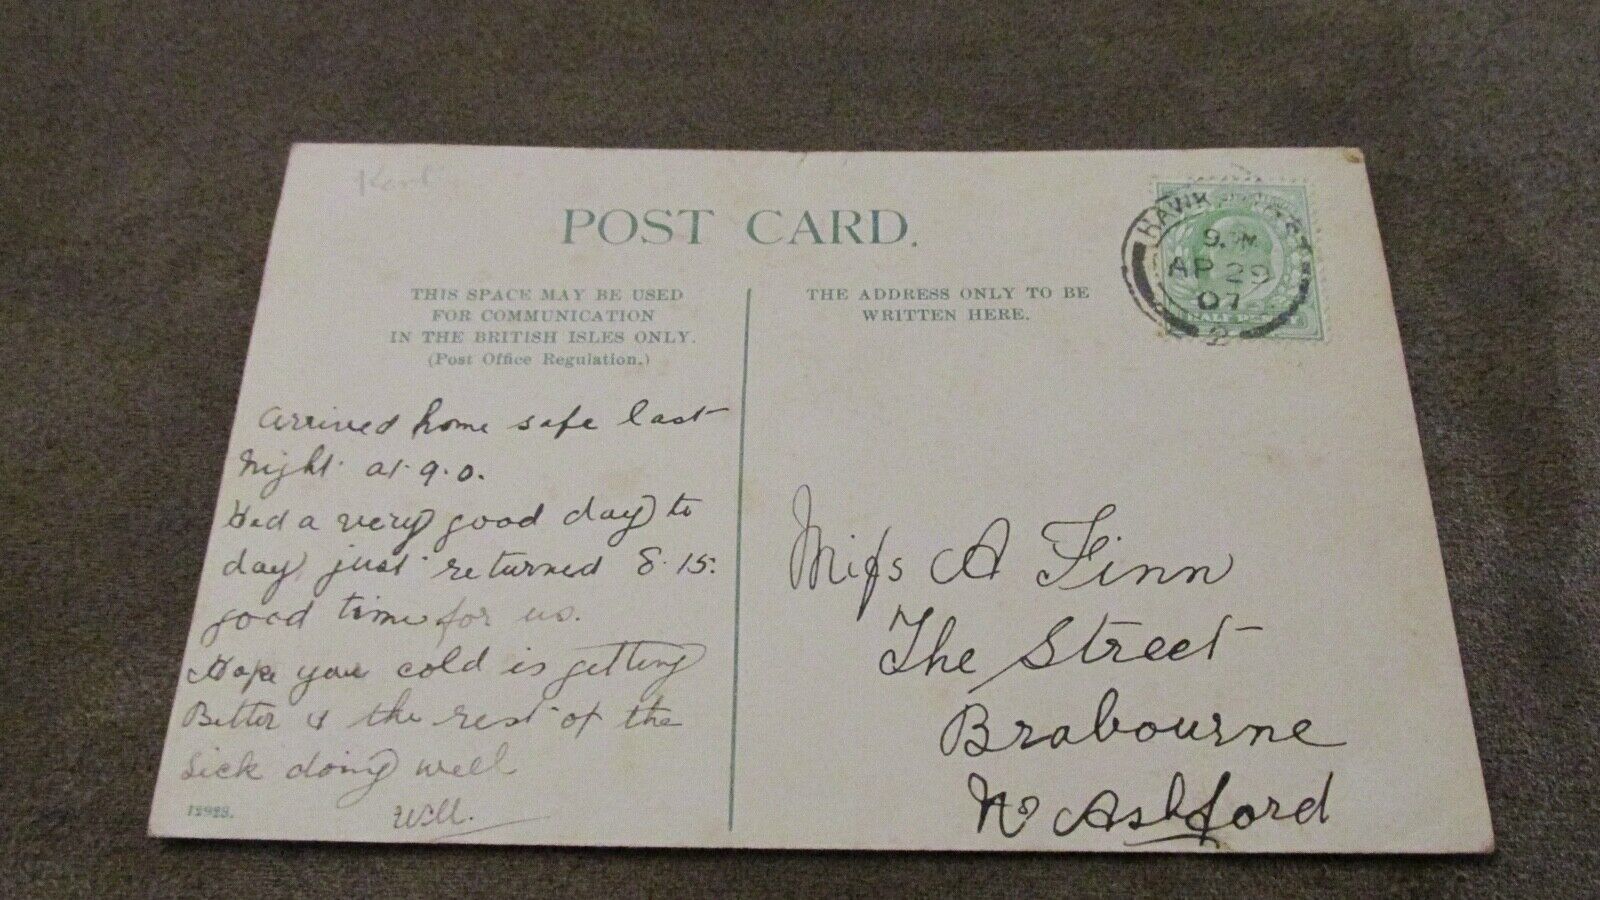 Kent
POST CARD.
THIS SPACE MAY BE USED
FOR COMMUNICATION
IN THE BRITISH ISLES ONLY.
(Post Office Regulation.)
THE ADDRESS ONLY TO BE
WRITTEN HERE.
HAWKHURST
9. PM
AP 29
07
2
HALF PENNY
arrived home safe last
night at 9.0.
Had a very good day to
day just returned 8.15.
good time for us.
Hope your cold is getting
Better & the rest of the
sick doing well
Will.
12928.
Miſs A Finn
The Street
Brabourne
Nr Ashford